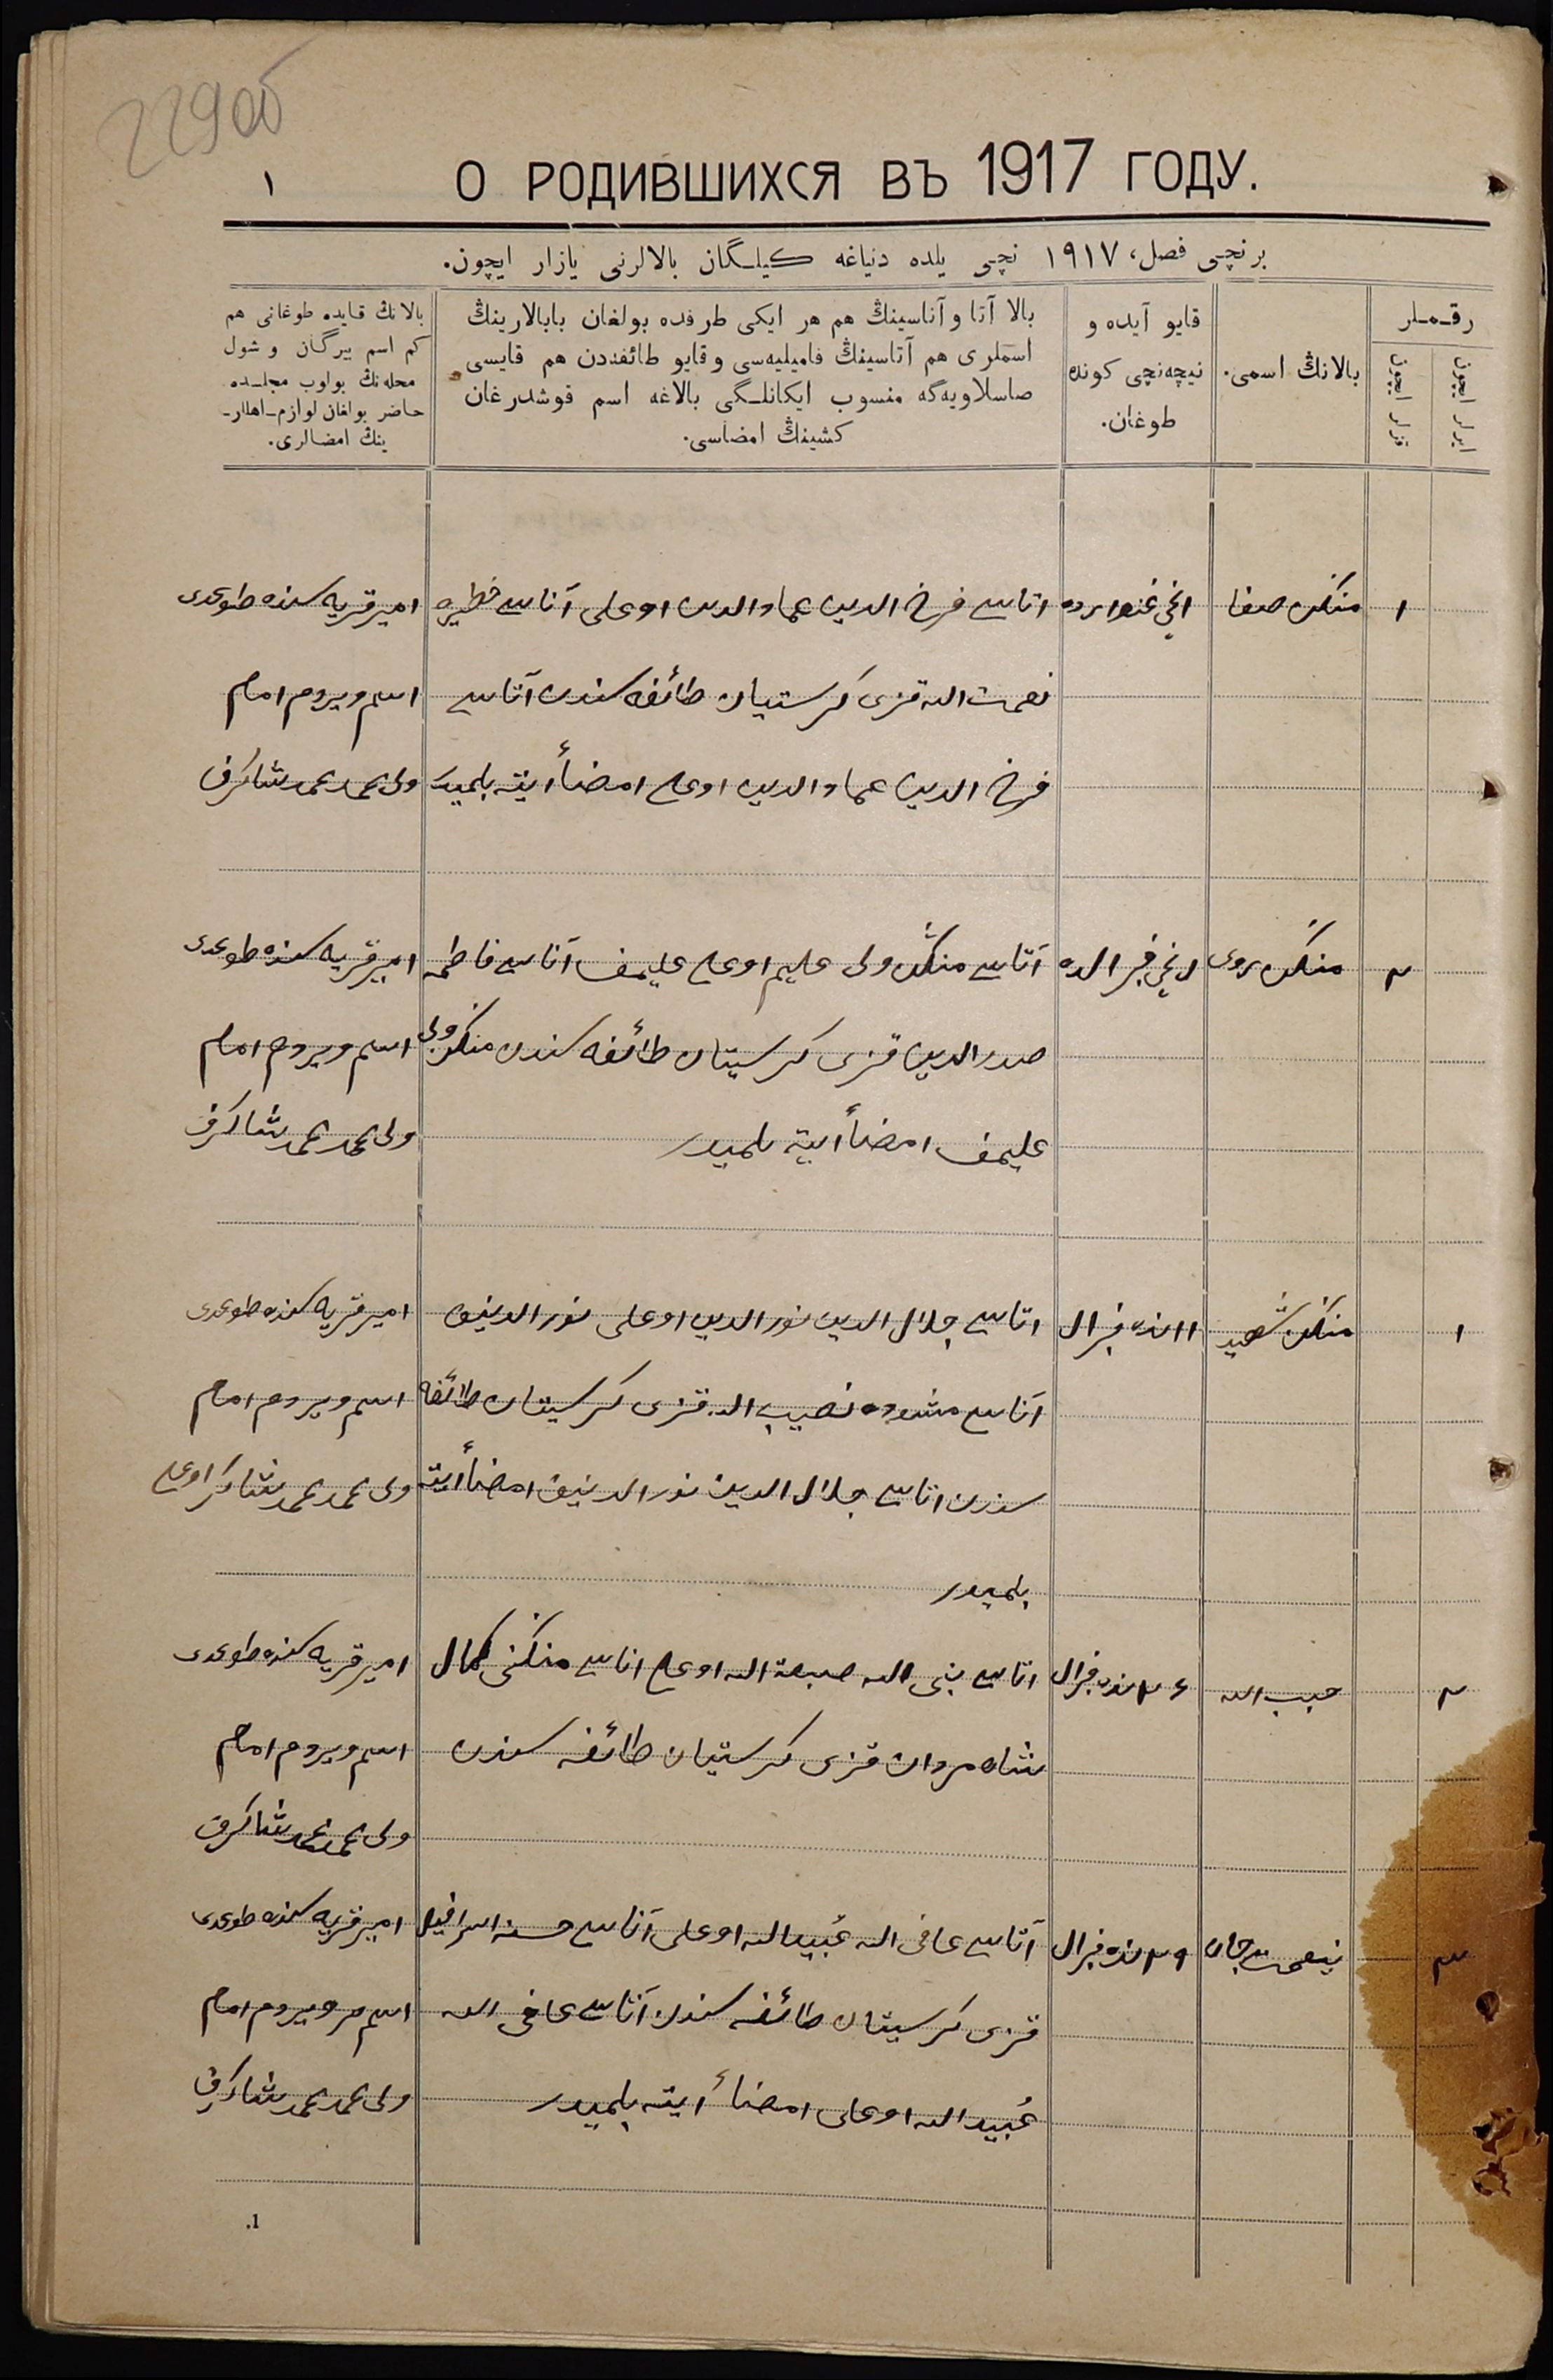 229об
١
О РОДИВШИХСЯ ВЪ 1917 ГОДУ.
برنچی فصل، ١٩١٧ نچی یلده دنیاغه کیلـگان بالالرنی یازار ایچون.
رقـملر
ایرلر ایچون
قزلر ایچون
بالانڭ اسمی.
قایو آیده و
نیچه‌نچی کونده
طوغان.
بالا آتا و آناسینڭ هم هر ایکی طرفده بولغان بابالارینڭ
اسملری هم آتاسینڭ فامیلیه‌سی و قایو طائفه‌دن هم قایسی
صاسلاویه‌گه منسوب ایکانلـگی بالاغه اسم قوشدرغان
کشینڭ امضاسی.
بالانڭ قایده طوغانی هم
کم اسم بیرگان و شول
محله‌نڭ بولوب مجلـده
حاضر بولغان لوازم اهللر-
ینڭ امضالری.
١ منکن صفا انچی غنوارده اتاسی فرخ الدین عماد الدین اوغلی آناسی خطیره امیر قریه سنده طوغدی
نعمت الله قزی کرستیان طائفه سندن آتاسی اسم ویردم امام
فرخ الدین عماد الدین اوغلی امضأ ایته بلمیدر ولی محمد محمد شاکرف
٢ فبرالده آتاسی منکن ولی علیم اوغلی علیمف آناسی فاطمه امیر قریه سنده طوغدی
صدر الدین قزی کرستیان طائفه سندن منکن ولی اسم ویردم امام
علیمف امضأ ایته بلمیدر ولی محمد محمد شاکرف
١ منکن شهید ١١ نده فبرال اتاسی جلال الدین نور الدین اوغلی نور الدینف امیر قریه سنده طوغدی
آناسی نصیب الله قزی کرستیان طائفه اسم ویردم امام
سندن اتاسی جلال الدین نور الدینف امضأ ایته ولی محمد محمد شاکر اوغلی
بلمیدر
٢ حبیب الله ٢٤ نده فبرال اتاسی نبی الله صبغة الله اوغلی اناسی کمال امیر قریه سنده طوغدی
شاه مردان قزی کرستیان طائفه سندن اسم ویردم امام
ولی محمد محمد شاکرف
٣ نعمت جان ٢٩ نده فبرال آتاسی عافی الله عبید الله اوغلی آناسی حسنه اسرافیل امیر قریه سنده طوغدی
قزی کرستیان طائفه سندن آتاسی عافی الله اسم ویردم امام
عبید الله اوغلی امضأ ایته بلمیدر ولی محمد محمد شاکرف
1.